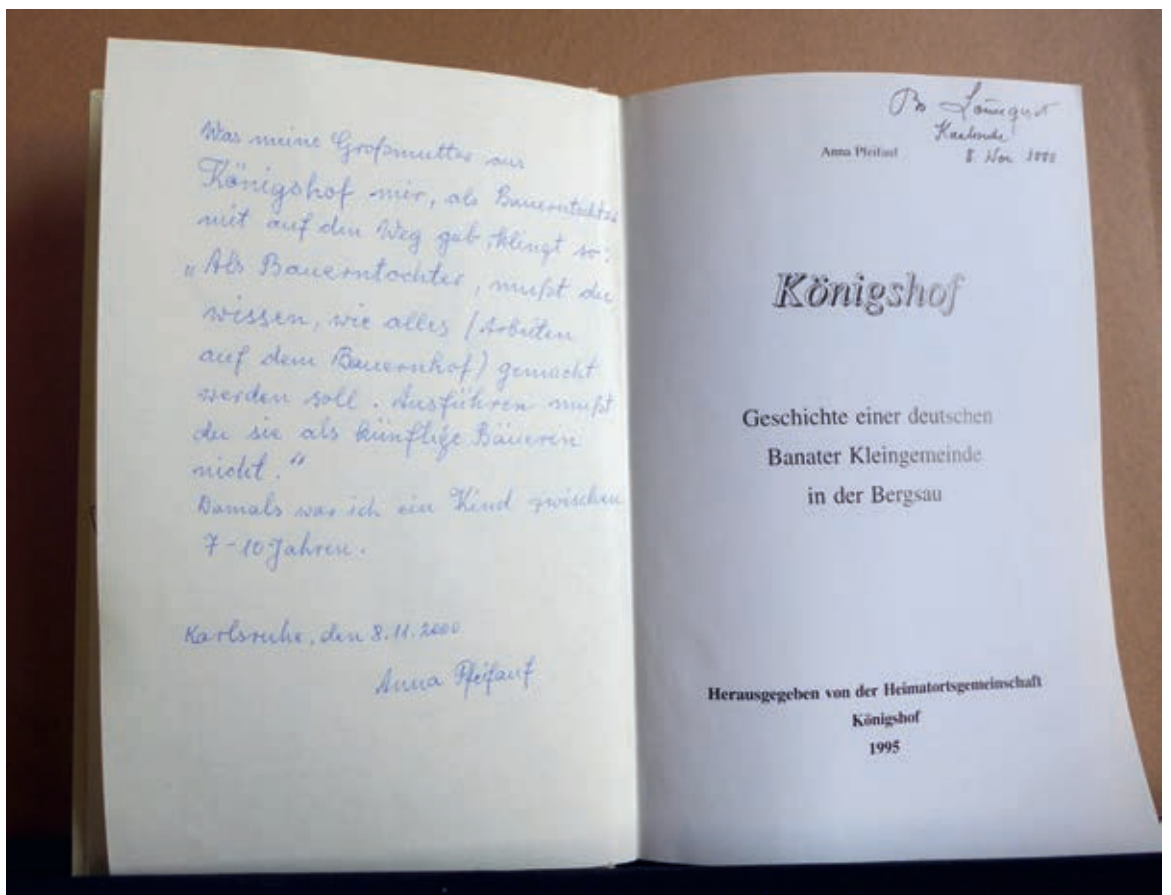 Was meine Großmutter aus
Königshof mir, als Bauerntochter
mit auf den Weg gab, klingt so:
„Als Bauerntochter, mußt du
wissen, wie alles (Arbeiten
auf dem Bauernhof) gemacht
werden soll. Ausführen mußt
du sie als künftige Bäuerin
nicht.“
Damals war ich ein Kind zwischen
7-10 Jahren.
Karlsruhe, den 8.11.2000
Anna Pfeifauf
Bo Lönnqvist
Karlsruhe
8 Nov 2000
Anna Pfeifauf
Königshof
Geschichte einer deutschen
Banater Kleingemeinde
in der Bergsau
Herausgegeben von der Heimatortsgemeinschaft
Königshof
1995